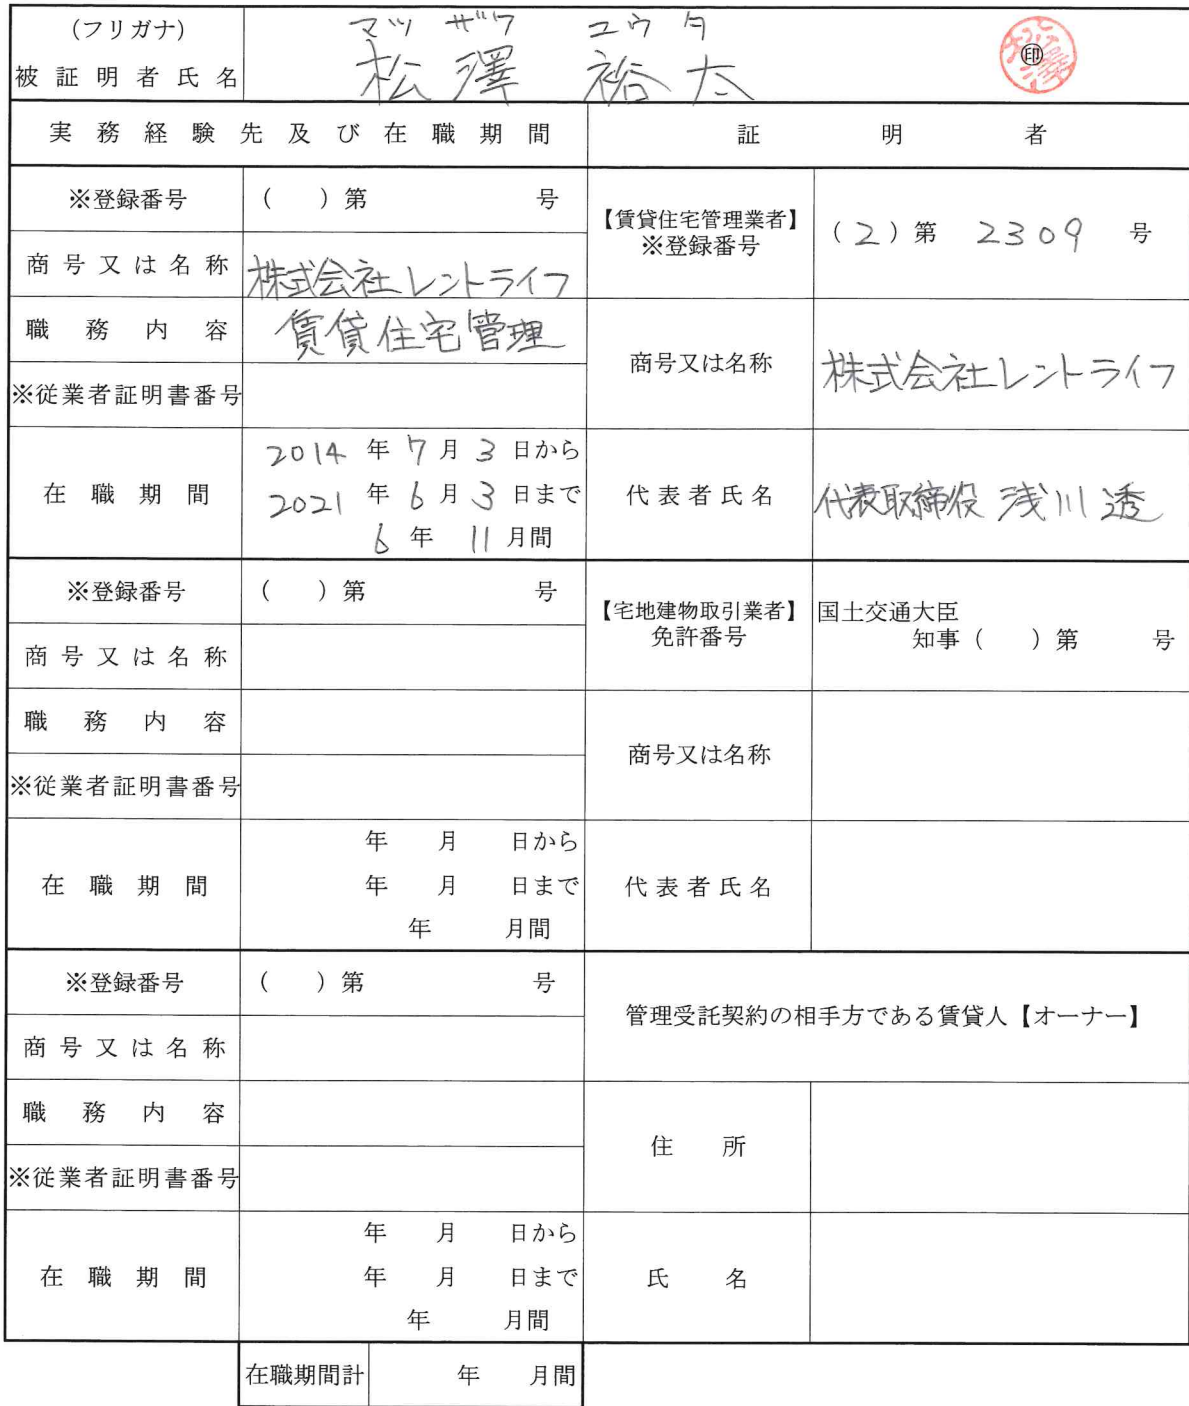 (フリガナ) マツザワ ユウタ
被証明者氏名 松澤 裕太 ㊞
実務経験先及び在職期間 証明者
※登録番号 ( )第 号
【賃貸住宅管理業者】
※登録番号 (2)第 2309 号
商号又は名称 株式会社レントライフ
職務内容 賃貸住宅管理
商号又は名称 株式会社レントライフ
※従業者証明書番号
在職期間
2014年7月3日から
2021年6月3日まで
6年11月間
代表者氏名 代表取締役 浅川透
※登録番号 ( )第 号
【宅地建物取引業者】
免許番号
国土交通大臣
知事( )第 号
商号又は名称
職務内容
商号又は名称
※従業者証明書番号
在職期間
年 月 日から
年 月 日まで
年 月間
代表者氏名
※登録番号 ( )第 号
管理受託契約の相手方である賃貸人【オーナー】
商号又は名称
職務内容
住所
※従業者証明書番号
在職期間
年 月 日から
年 月 日まで
年 月間
氏名
在職期間計 年 月間